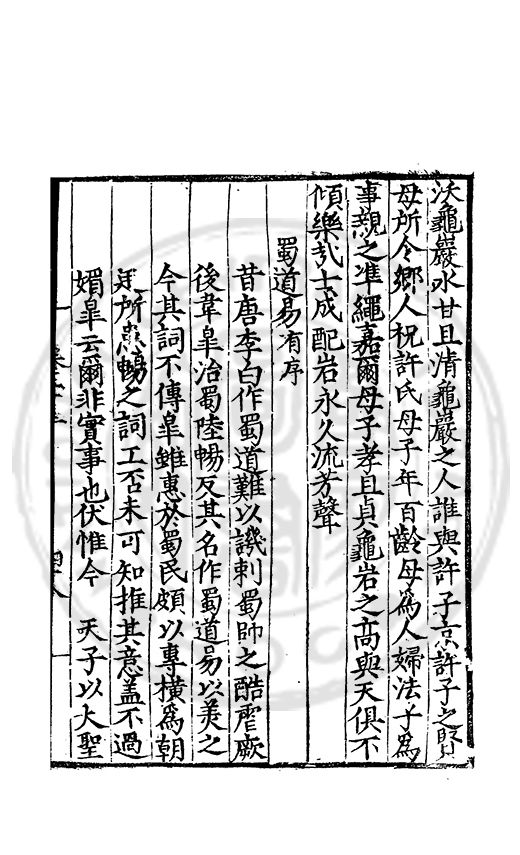 沃龜巖水甘且清龜巖之人誰與許子京許子之賢
母所令鄉人祝許氏母子年百齡母爲人婦法子爲
事親之准繩嘉爾母子孝且貞龜岩之高與天俱不
傾樂哉士成配岩永久流芳聲
蜀道易有序
昔唐李白作蜀道難以譏刺蜀帥之酷虐厥
後韋皐治蜀陸暢反其名作蜀道易以美之
今其詞不傳皐雖惠於蜀民頗以專橫爲朝
廷所患暢之詞工否未可知推其意盖不過
媚皐云爾非實事也伏惟今 天子以大聖